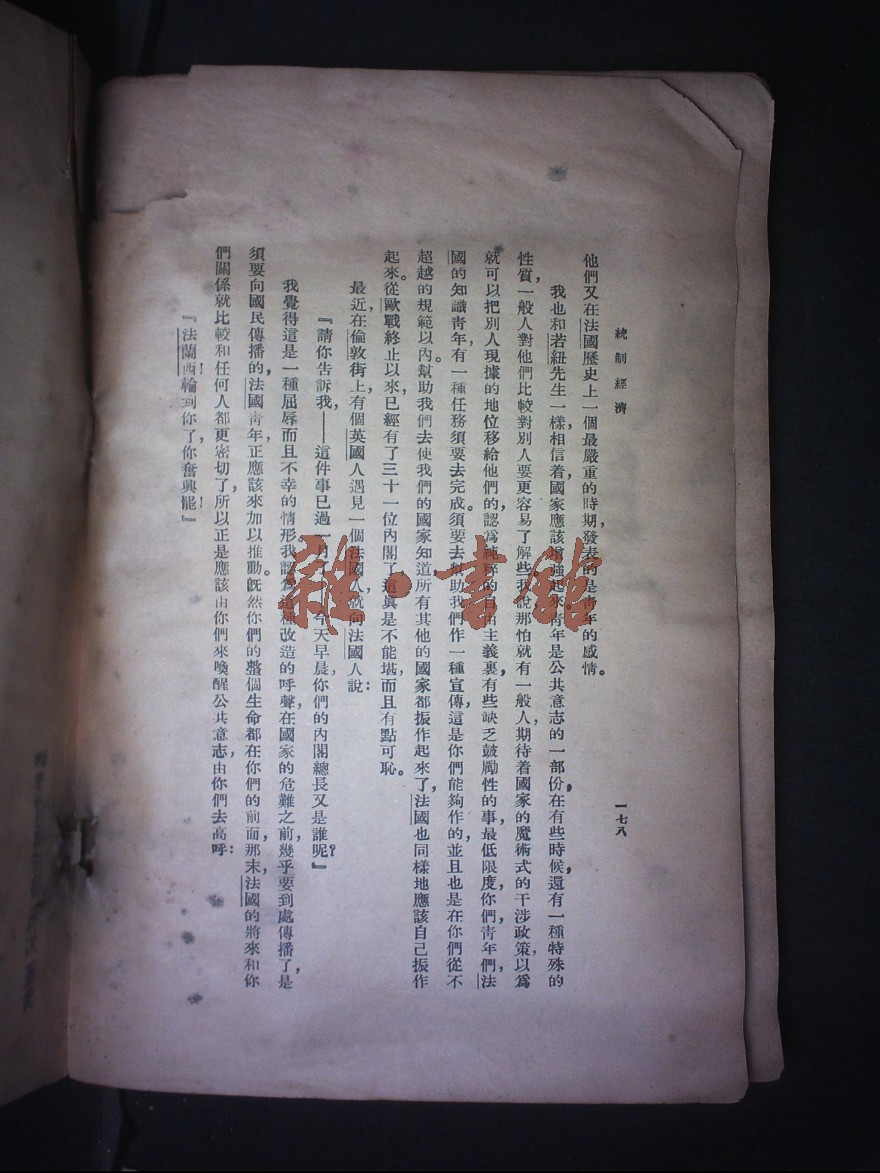 統制經濟
一七八
他們又在法國歷史上一個最嚴重的時期，發表的是青年的感情。
我也和若紐先生一樣，相信着，國家應該增強起來。青年是公共意志的一部份，在有些時候，還有一種特殊的
性質，一般人對他們比較對別人要更容易了解些。我說那怕就有一般人，期待着國家的魔術式的干涉政策，以爲
就可以把別人現據的地位移給他們的，認爲純粹的自由主義裏，有些缺乏鼓勵性的事，最低限度，你們，青年們，法
國的知識青年，有一種任務須要去完成。須要去幫助我們作一種宣傳，這是你們能夠作的，並且也是在你們從不
超越的規範以內。幫助我們去使我們的國家知道，所有其他的國家都振作起來了，法國也同樣地應該自己振作
起來。從歐戰終止以來，已經有了三十一位內閣了，這眞是不能堪，而且有點可恥。
最近，在倫敦街上，有個英國人遇見一個法國人，就向法國人說：
『請你告訴我，——這件事已過一月了，——今天早晨，你們的內閣總長又是誰呢？』
我覺得這是一種屈辱而且不幸的情形，我認爲這種改造的呼聲，在國家的危難之前，幾乎要到處傳播了，是
須要向國民傳播的，法國青年，正應該來加以推動。既然你們的整個生命都在你們的前面，那末，法國的將來和你
們關係就比較和任何人都更密切了，所以正是應該由你們來喚醒公共意志，由你們去高呼：
『法蘭西！輪到你了，你奮興罷！』
雜·書館